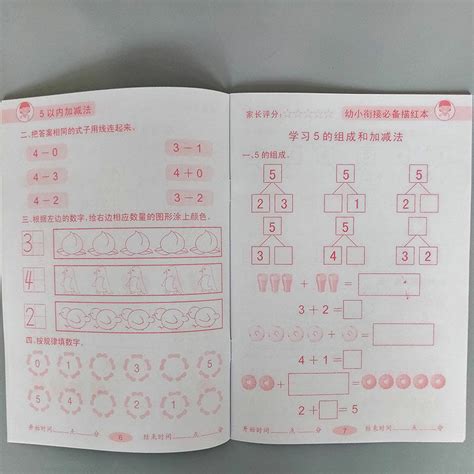 5以内加减法
二、把答案相同的式子用线连起来。
4－0 3－1
4－3 4＋0
4－2 3－2
三、根据左边的数字，给右边相应数量的图形涂上颜色。
3
4
2
四、按规律填数字。
0 1 2 4
5 4 3 0
开始时间 点 分 6 结束时间 点 分
家长评分：☆☆☆☆☆ 幼小衔接必备描红本
学习5的组成和加减法
一、5的组成。
5 5 5
2 3 1 2
5 5 5
4 3 2
＋ ＝
3＋2＝
＋ ＝
4＋1＝
＋ ＝
2＋□＝5
开始时间 点 分 7 结束时间 点 分